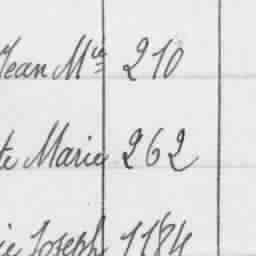 Jean Mie 210
te Marie 262
ie Joseph 1184